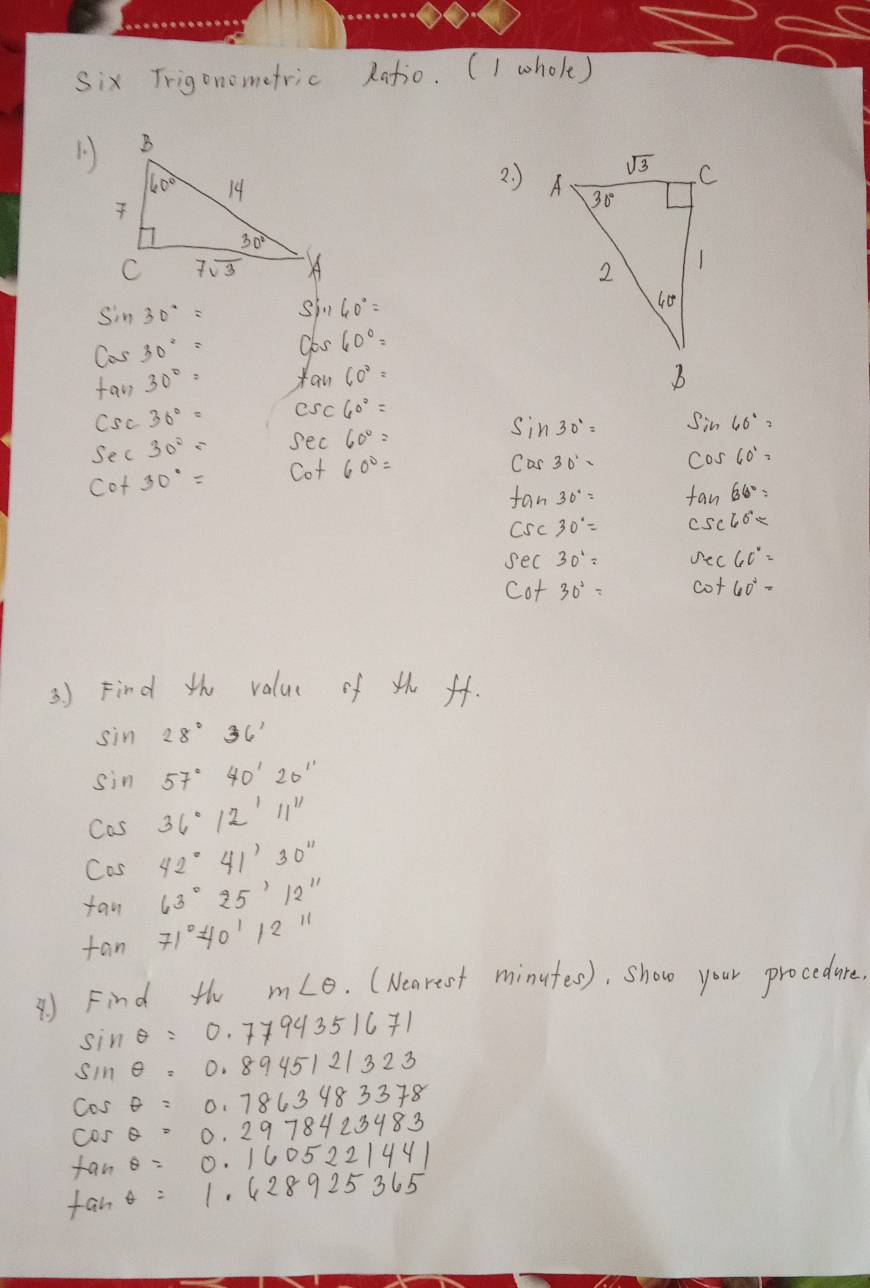 Six Trigonometric Ratio. (1 whole)
1.)
B
60°
14
7
30°
C
7√3
A
Sin 30° =
Cos 30° =
tan 30° =
Csc 30° =
Sec 30° =
Cot 30° =
Sin 60° =
Cos 60° =
tan 60° =
csc 60° =
Sec 60° =
Cot 60° =
2.)
√3
A
C
30°
2
1
60°
B
Sin 30° =
Cos 30° =
tan 30° =
Csc 30° =
Sec 30° =
Cot 30° =
Sin 60° =
Cos 60° =
tan 60° =
csc 60° =
sec 60° =
cot 60° =
3.) Find the value of the ff.
sin 28° 36'
sin 57° 40' 20"
Cos 36° 12' 11"
Cos 42° 41' 30"
tan 63° 25' 12"
tan 71° 40' 12"
4.) Find the m∠θ. (Nearest minutes). Show your procedure.
sin θ = 0.7794351671
sin θ = 0.8945121323
cos θ = 0.7863483378
cos θ = 0.2978423483
tan θ = 0.1605221441
tan θ = 1.628925365